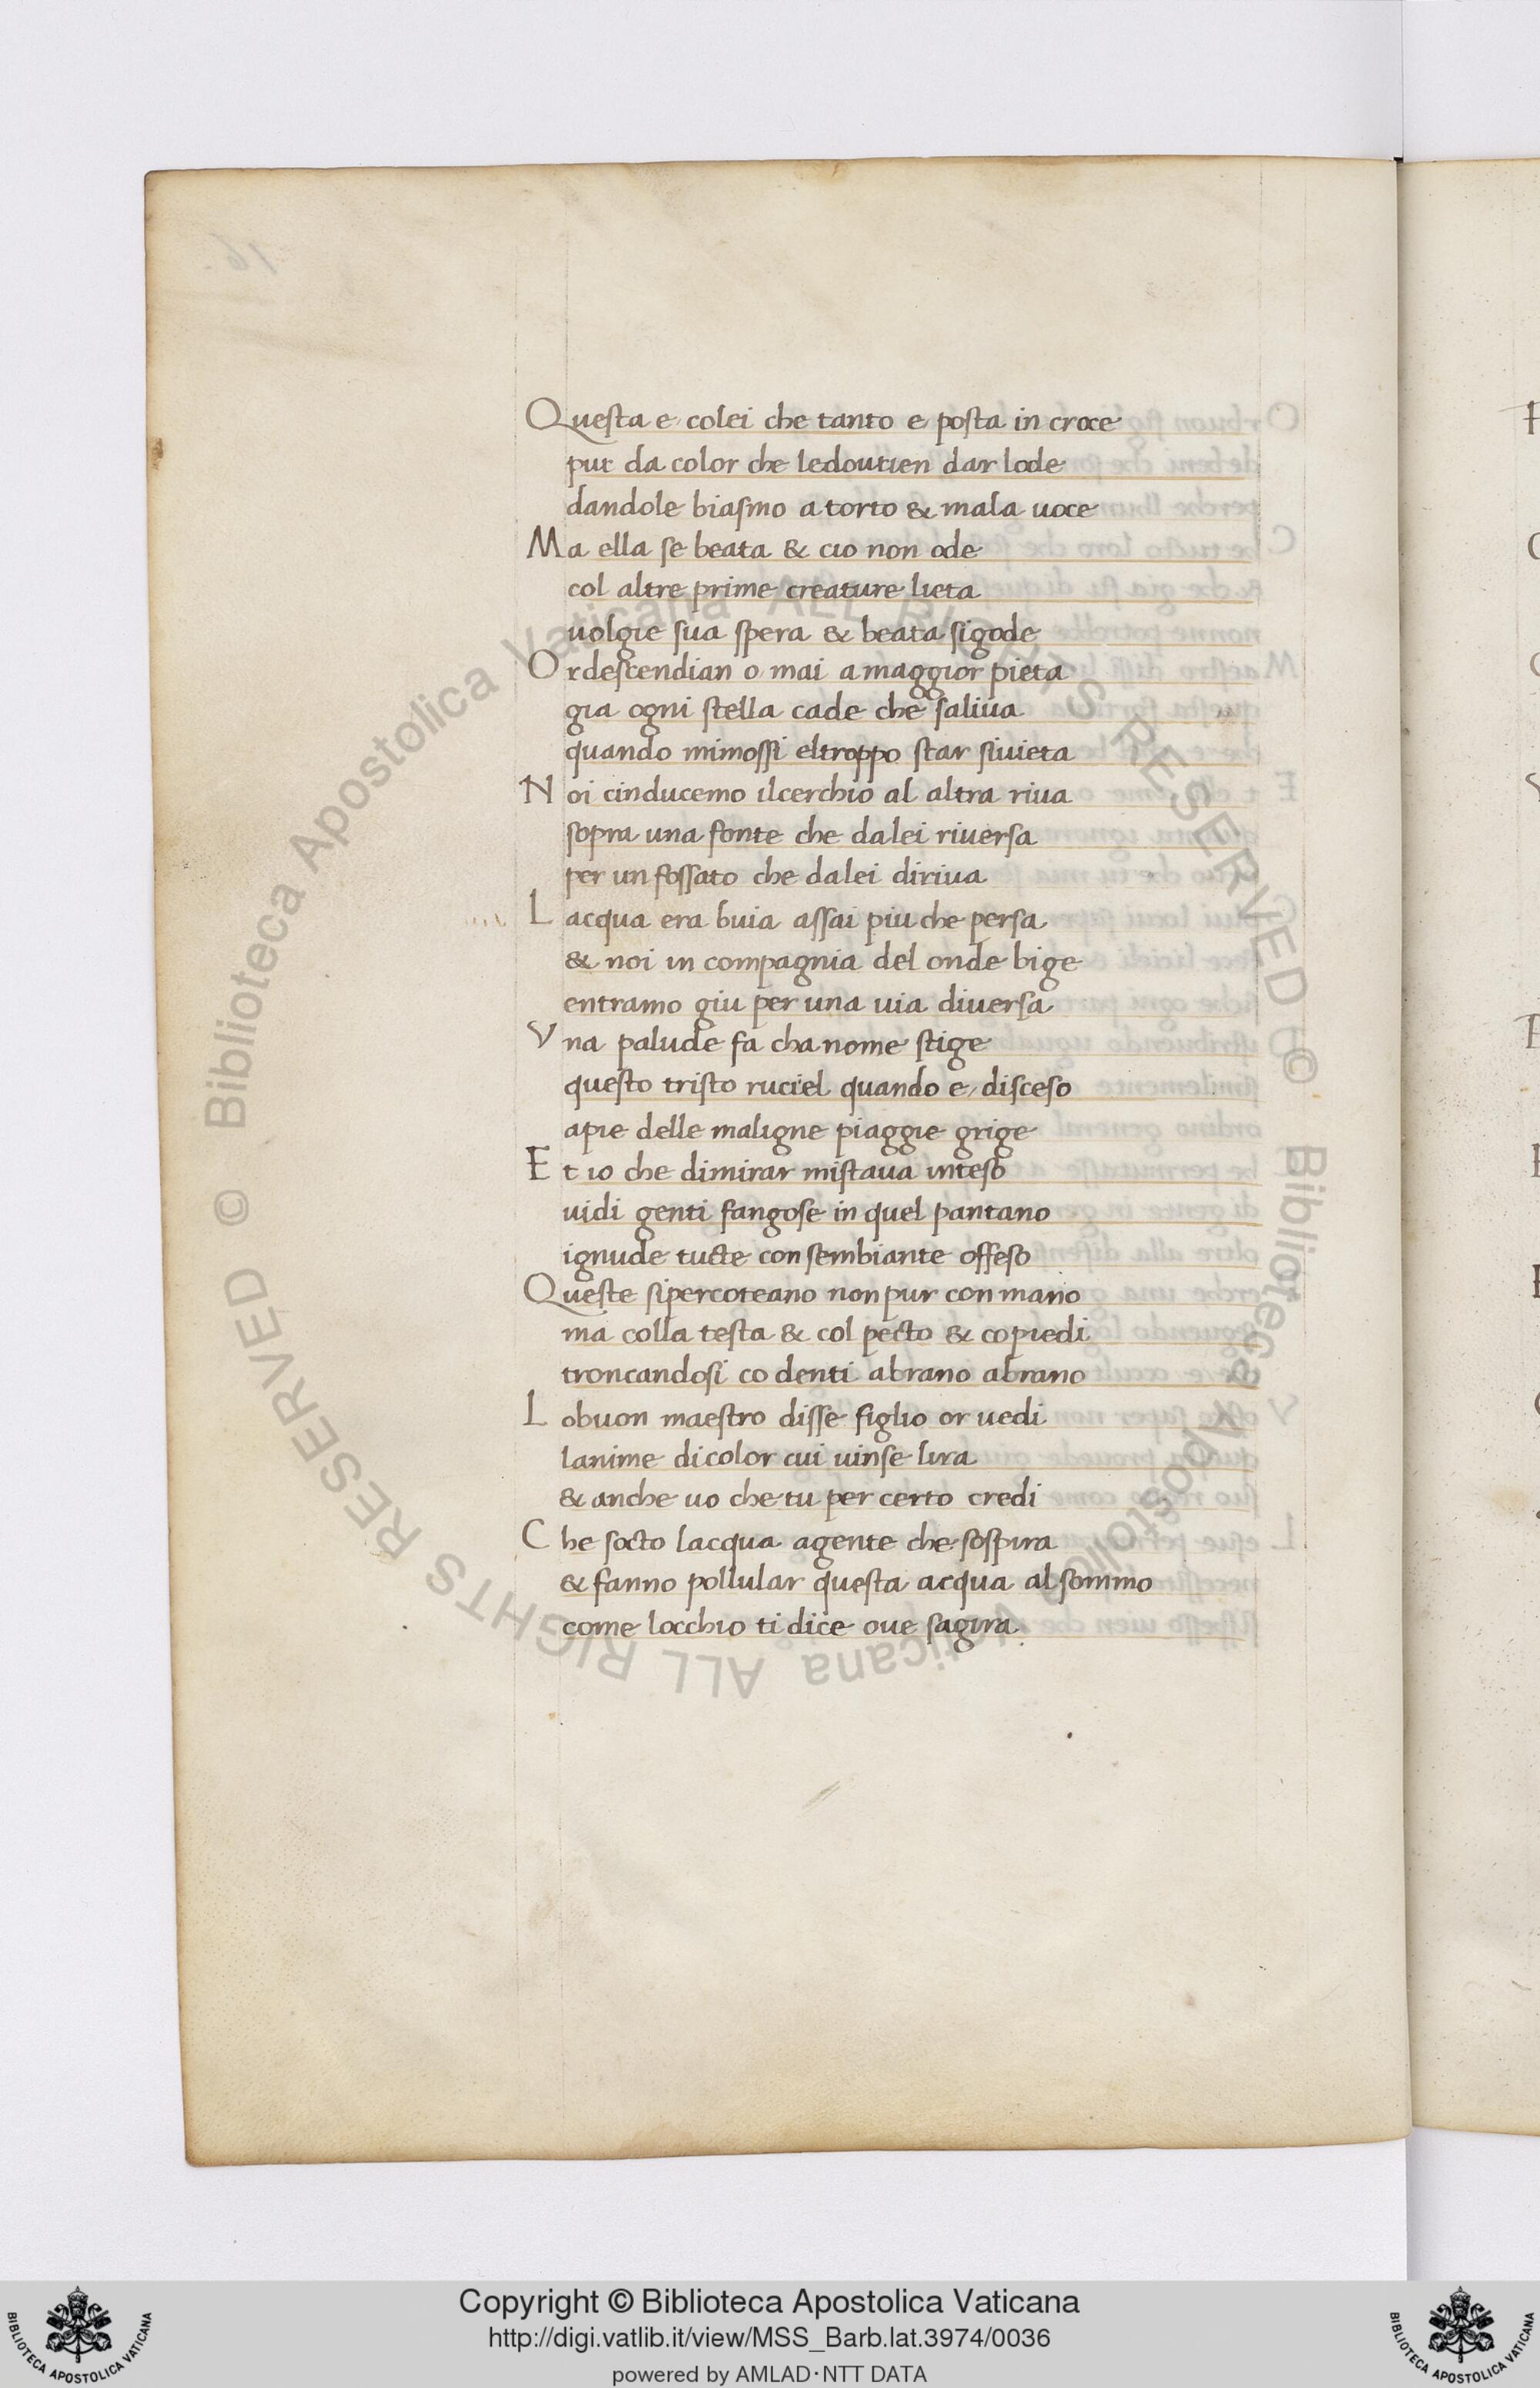 Questa e colei che tanto e posta in croce
pur da color che ledourien dar lode
dandole biasmo a torto & mala uoce
Ma ella se beata & cio non ode
col altre prime creature lieta
uolgie sua spera & beata sigode
Or descendian o mai a maggior pieta
gia ogni stella cade che saliua
quando mimossi eltroppo star siuieta
Noi cinducemo ilcerchio al altra riua
sopra una fonte che dalei riuersa
per un fossato che dalei diriua
Lacqua era buia assai piu che persa
& noi in compagnia del onde bige
entramo giu per una uia diuersa
Vna palude fa cha nome stige
questo tristo ruciel quando e disceso
apie delle maligne piaggie grige
Et io che dimirar mistaua inteso
uidi genti fangose in quel pantano
ignude tucte con sembiante offeso
Queste sipercoteano non pur con mano
ma colla testa & col pecto & co piedi
troncandosi co denti abrano abrano
Lo buon maestro disse figlio or uedi
lanime dicolor cui uinse lira
& anche uo che tu per certo credi
Che socto lacqua a gente che sospira
& fanno pollular questa acqua al sommo
come locchio ti dice oue sagira
Biblioteca Apostolica Vaticana ALL RIGHTS RESERVED ©
Biblioteca Apostolica Vaticana ALL RIGHTS RESERVED ©
Copyright © Biblioteca Apostolica Vaticana
http://digi.vatlib.it/view/MSS_Barb.lat.3974/0036
powered by AMLAD·NTT DATA
BIBLIOTECA APOSTOLICA VATICANA
BIBLIOTECA APOSTOLICA VATICANA